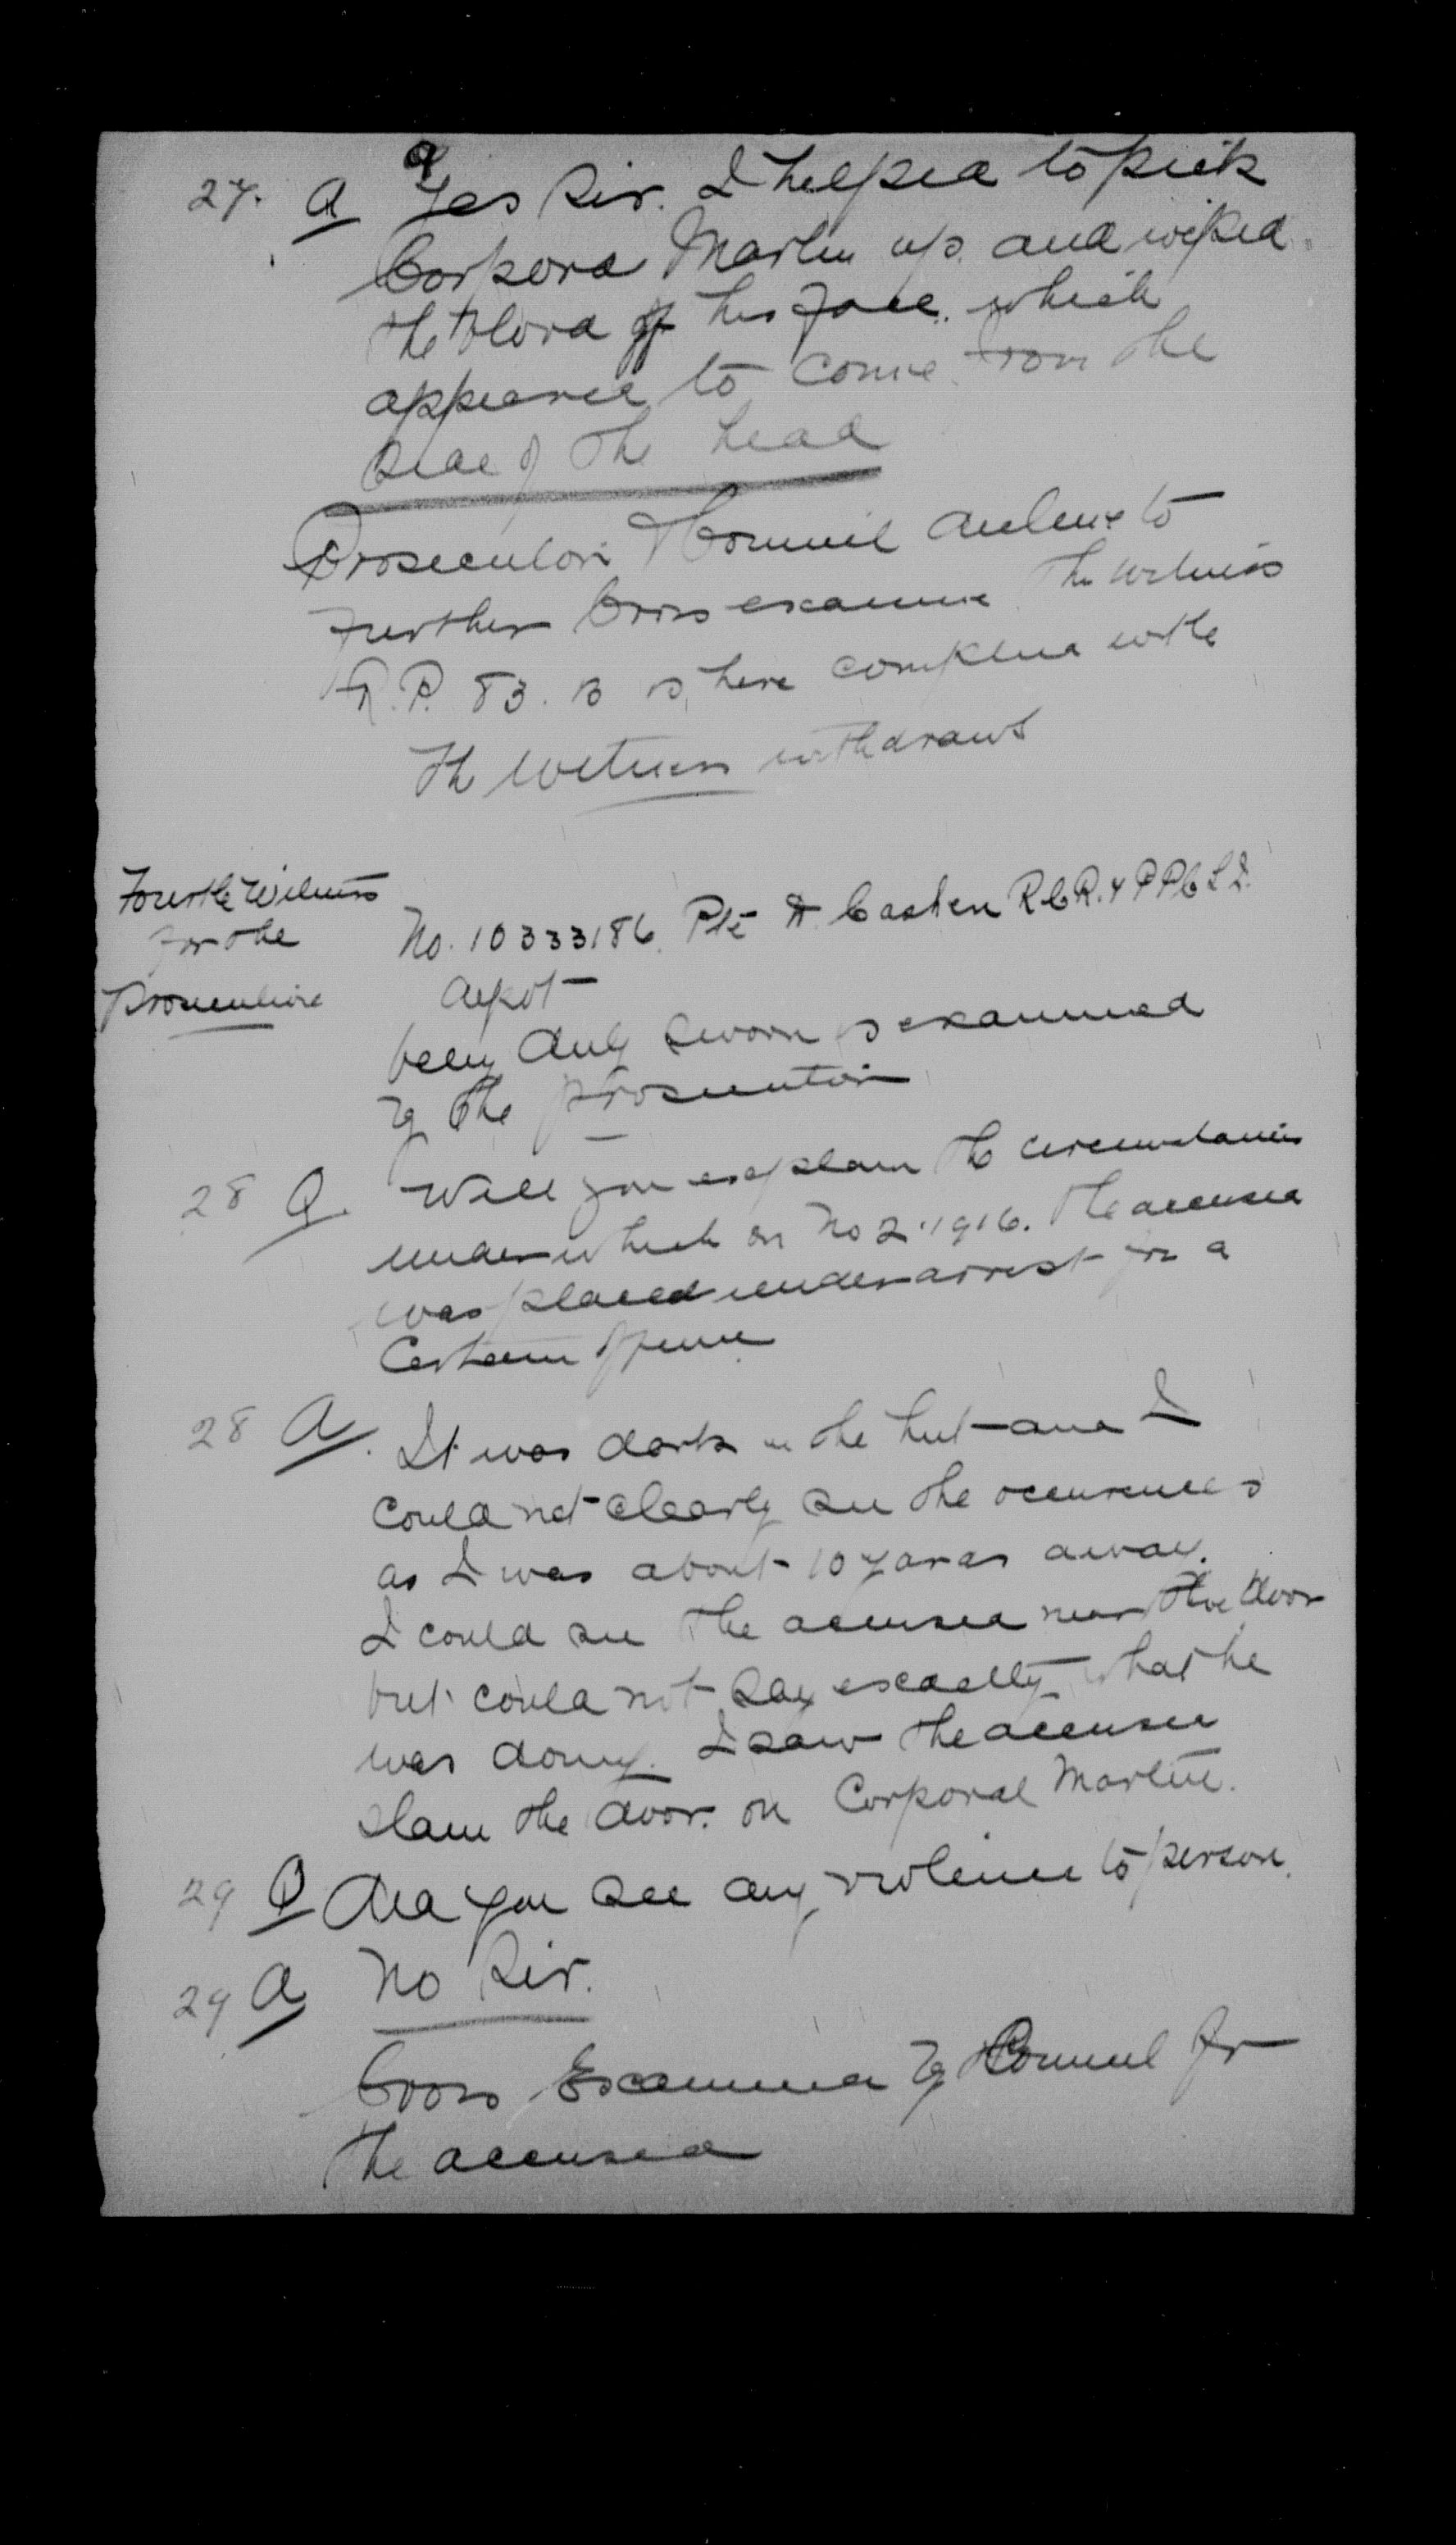 27. A Yes Sir. I helped to pick
Corporal Martin up and wiped
the blood off his face, which
appeared to come from the
side of the head
Prosecutor & Counsel decline to
further Cross examine the witness
R.P. 83. B is here complied with
The Witness withdraws
Fourth Witness
for the
Prosecution
No. 10333186. Pte A. R.C.R. & P.P.C.L.I.
depot
being duly sworn is examined
by the prosecutor
28 Q. Will you explain the circumstances
under which on No 2. 1916. the accused
was placed under arrest for a
Certain offence
28 A. It was dark in the hut and I
could not clearly see the occurences
as I was about 10 yards away.
I could see the accused near the door
but could not say exactly what he
was doing. I saw the accused
slam the door on Corporal Martin.
29 Q Did you see any violence to person.
29 A No Sir.
Cross Examined by Counsel for
the accused